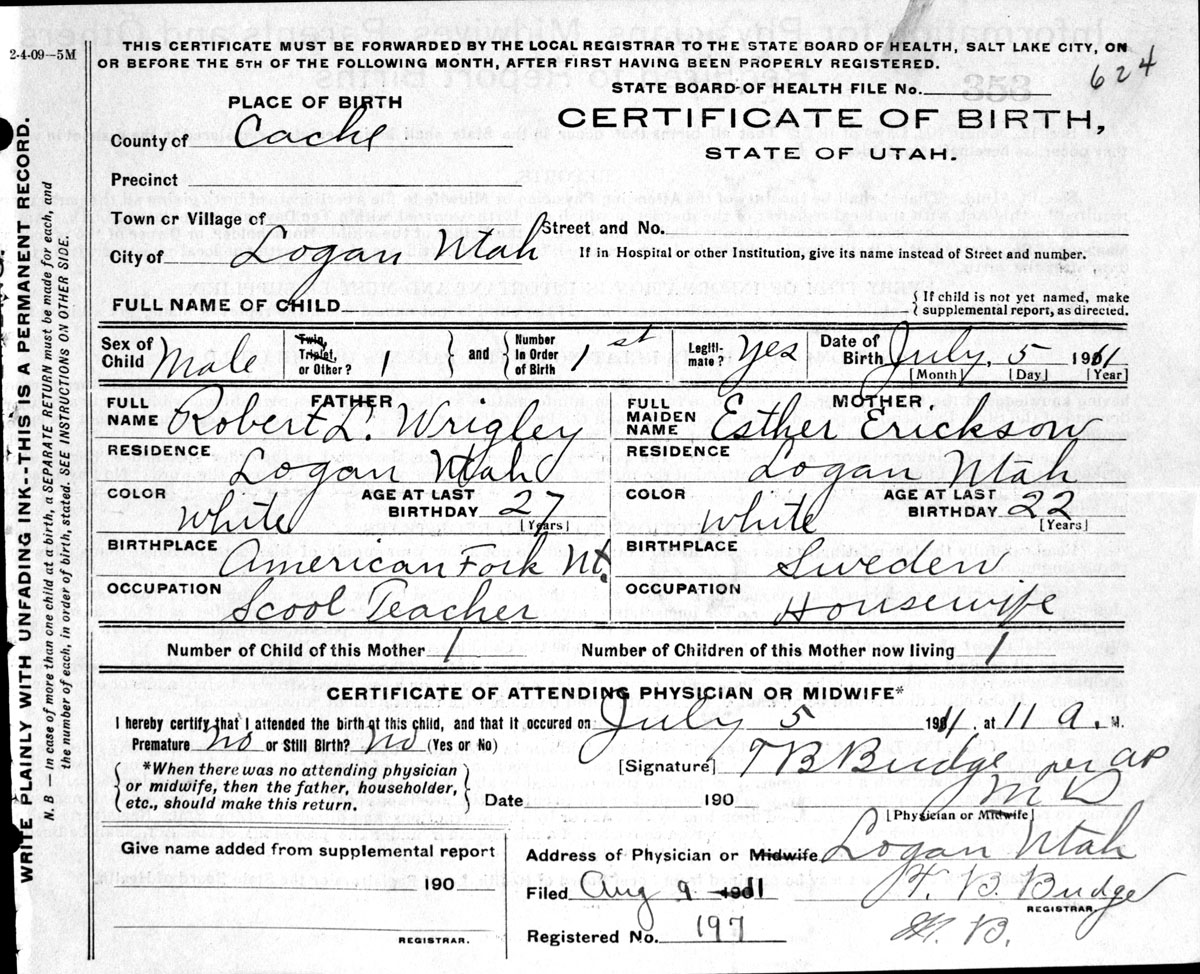 2-4-09—5M
THIS CERTIFICATE MUST BE FORWARDED BY THE LOCAL REGISTRAR TO THE STATE BOARD OF HEALTH, SALT LAKE CITY, ON
OR BEFORE THE 5TH OF THE FOLLOWING MONTH, AFTER FIRST HAVING BEEN PROPERLY REGISTERED.
624
STATE BOARD OF HEALTH FILE No.
353
PLACE OF BIRTH
CERTIFICATE OF BIRTH,
STATE OF UTAH.
County of Cache
Precinct
Town or Village of
Street and No.
City of Logan Utah
If in Hospital or other Institution, give its name instead of Street and number.
FULL NAME OF CHILD
{ If child is not yet named, make
supplemental report, as directed.
Sex of Child Male Twin, Triplet, or Other? 1 } and { Number in Order of Birth 1st Legiti-mate? Yes Date of Birth July 5 1911
[Month] [Day] [Year]
FATHER MOTHER
FULL NAME Robert L. Wrigley FULL MAIDEN NAME Esther Erickson
RESIDENCE Logan Utah RESIDENCE Logan Utah
COLOR White AGE AT LAST BIRTHDAY 27 [Years] COLOR White AGE AT LAST BIRTHDAY 22 [Years]
BIRTHPLACE American Fork Ut. BIRTHPLACE Sweden
OCCUPATION Scool Teacher OCCUPATION Housewife
Number of Child of this Mother 1 Number of Children of this Mother now living 1
CERTIFICATE OF ATTENDING PHYSICIAN OR MIDWIFE*
I hereby certify that I attended the birth of this child, and that it occured on July 5 1911, at 11 a. M.
Premature No or Still Birth? No (Yes or No)
*When there was no attending physician
or midwife, then the father, householder,
etc., should make this return.
[Signature] T B Budge per AP
M D
Date 190
[Physician or Midwife]
Give name added from supplemental report
190
REGISTRAR.
Address of Physician or Midwife Logan Utah
Filed Aug 9 1911 T. B. Budge
REGISTRAR
Registered No. 197
B.
WRITE PLAINLY WITH UNFADING INK--THIS IS A PERMANENT RECORD.
N. B — In case of more than one child at a birth, a SEPARATE RETURN must be made for each, and
the number of each, in order of birth, stated. SEE INSTRUCTIONS ON OTHER SIDE.